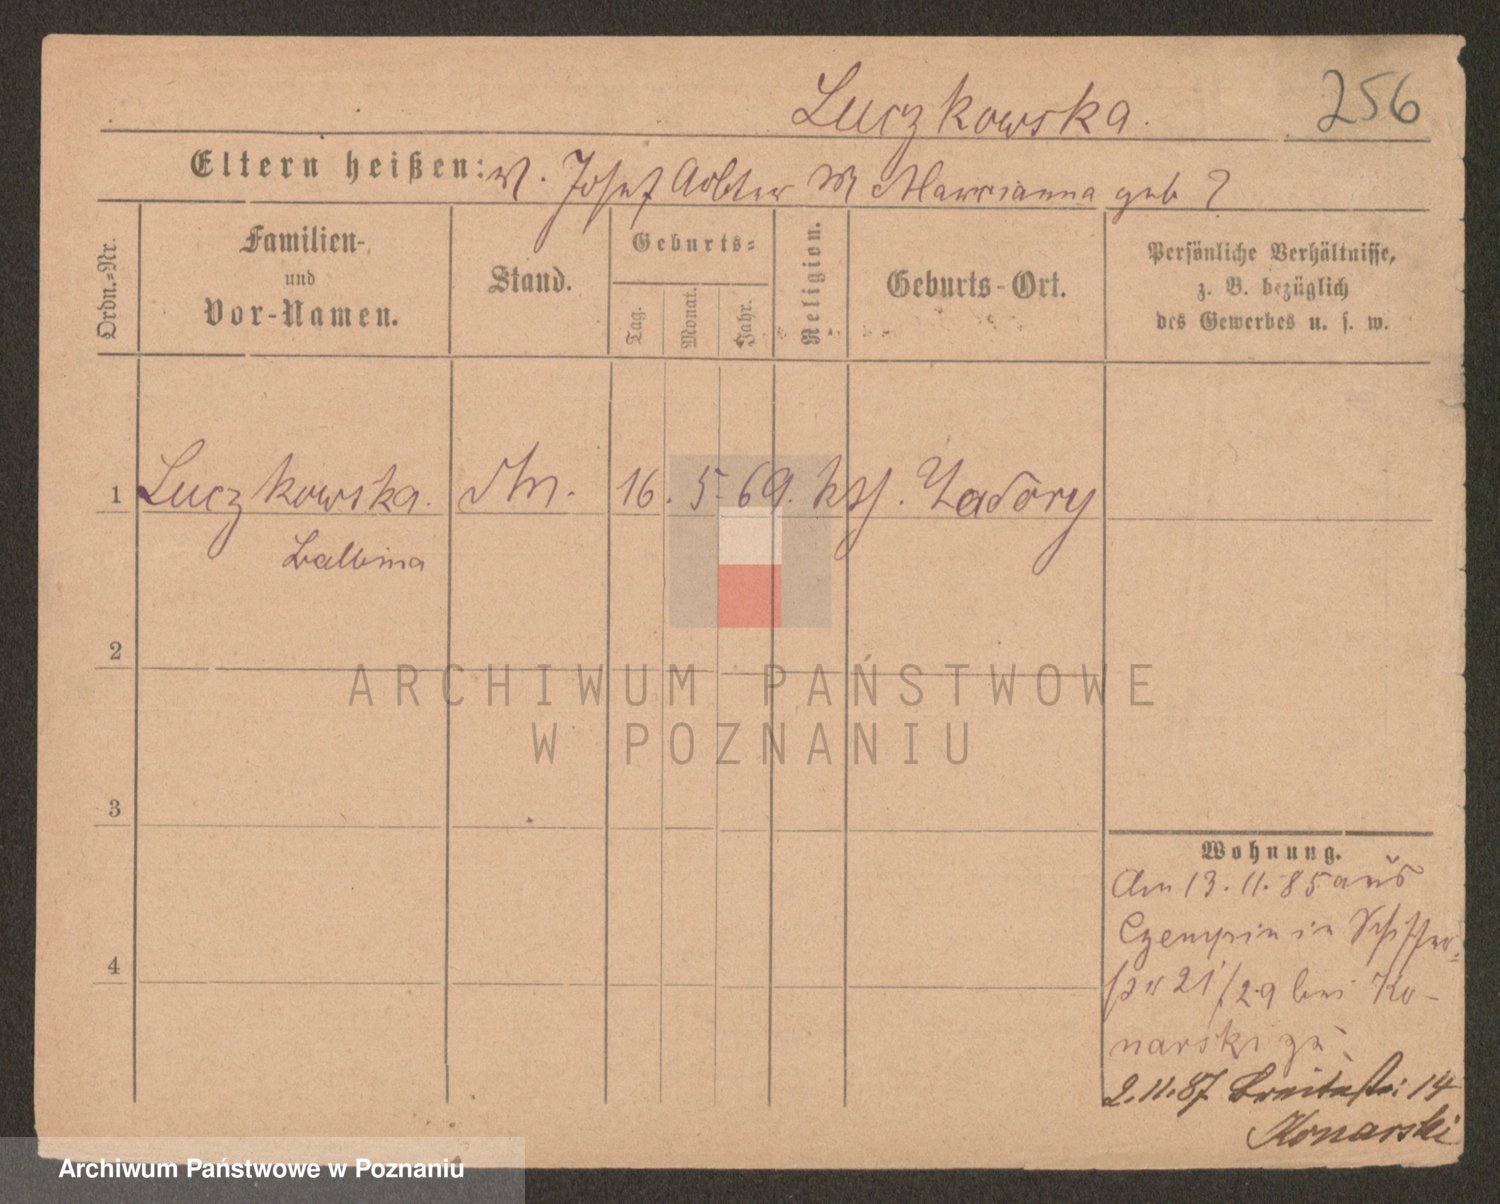 Luczkowska. 256
Eltern heißen: V. Josef Arbter M Marrianna geb ?
Ordn.-Nr.
Familien-
und
Vor-Namen.
Stand.
Geburts-
Tag.
Monat.
Jahr.
Religion.
Geburts-Ort.
Persönliche Verhältnisse,
z. B. bezüglich
des Gewerbes u. s. w.
1 Luczkowska. 16. 5. 69. kth. Zadory
Balbina
2
3
4
Wohnung.
Am 13.11.85 aus
Czempin in Schiffer-
str 21/29 bei Ko-
narski zu
2.11.87 Breitestr: 14
Konarski
ARCHIWUM PAŃSTWOWE
W POZNANIU
Archiwum Państwowe w Poznaniu